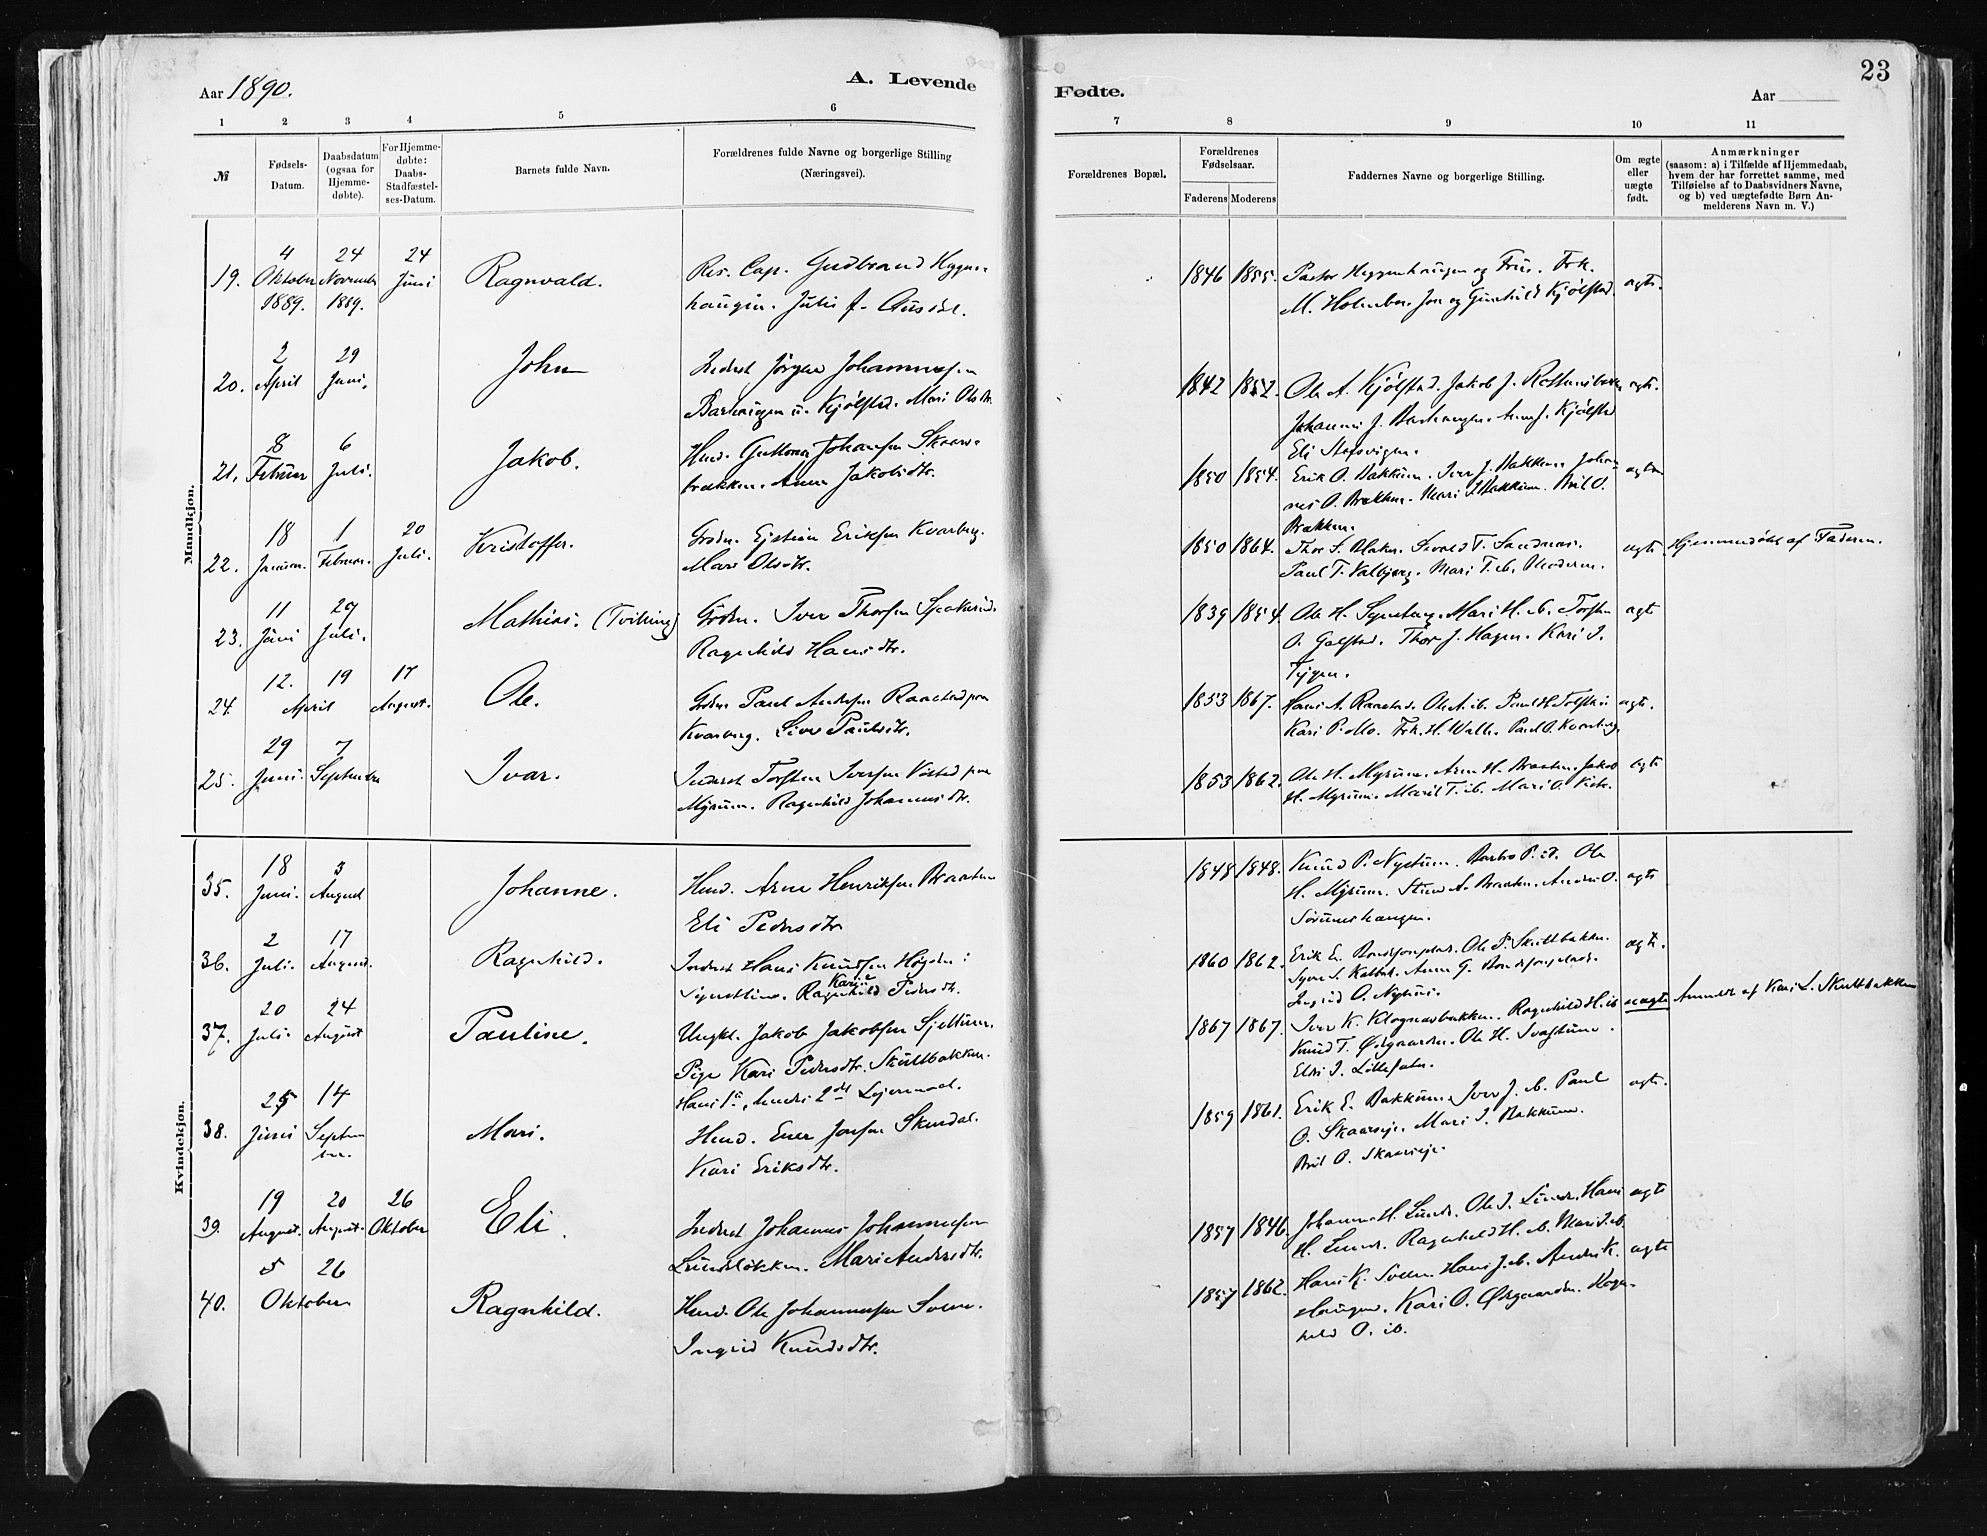 Aar 1890.
A. Levende
Fødte.
23
Aar
1 2 3 4 5 6 7 8 9 10 11
№
Fødsels-Datum.
Daabsdatum (ogsaa for Hjemme-døbte).
For Hjemme-døbte: Daabs-Stadfæstel-ses-Datum.
Barnets fulde Navn.
Forældrenes fulde Navne og borgerlige Stilling (Næringsvei).
Forældrenes Bopæl.
Forældrenes Fødselsaar.
Faderens Moderens
Faddernes Navne og borgerlige Stilling.
Om ægte eller uægte født.
Anmærkninger
(saasom: a) i Tilfælde af Hjemmedaab, hvem der har forrettet samme, med Tilføielse af to Daabsvidners Navne, og b) ved uægtefødte Børn An-melderens Navn m. V.)
Mandkjøn.
19. 4 Oktober 1889. 24 November 1889. 24 Juni Ragnvald.
Res. Cap. Gudbrand Heggen-
haugen. Julie f.
1846 1855. Pastor Heggenhaugen og Frue. Frk.
M. Holmboe. Jon og Gunhild Kjølstad. ægte.
20. 2 April 29 Juni. John
Inderst Jørgen Johannesen
Barhaugen u. Kjølstad. Mari Olsdtr.
1842 1852. Ole A. Kjølstad. Jakob J.
Johannes J. Barhaugen. Kjølstad
Eli
ægte.
21. 8 Februar 6 Juli. Jakob.
Huusm. Guttorm Johansen Skaare-
brækken. Anne Jakobsdtr.
1850 1854. Erik O. Bakkum. Iver J. Bakken. Johan-
nes O. Brækken. Mari J. Bakkum. Brit O.
Brækken.
ægte
22. 18 Januar. 1 Februar. 20 Juli. Kristoffer.
Grdm. Eistein Eriksen Kvarberg.
Mari Olsdtr.
1850 1864. Thor S. Blaker. Sevald T. Sandnes.
Paul T. Valbjørg. Mari T. ib. Moderen.
ægte Hjemmedøbt af Faderen.
23. 11 Juni 27 Juli. Mathias. (Tvilling)
Grdm. Iver Thorsen
Ragnhild Hansdtr.
1839 1854. Ole H. Mari H. ib. Torsten
O. Galstad. Thor J. Hagen. Kari I.
ægte
24. 12. April 19 17 August. Ole.
Grdm Paul Andersen Raastad paa
Kvarberg. Live Paulsdtr.
1853 1867. Hans A. Raastad. Ole A. ib. Paul H. Tolstad
Kari P. Mo. Frk. H. Wall. Paul O. Kvarberg.
ægte.
25. 29 Juni. 7 September Ivar.
Inderst Torsten Iversen Vistad paa
Myrum. Ragnhild Johannesdtr.
1853 1862. Ole H. Myrum. Arne H. Braaten. Jakob
H. Myrum. Marit T. ib. Mari O.
ægte
Kvindekjøn.
35. 18 Juni. 3 August Johanne.
Huusm. Arne Henriksen Braaten
Eli Pedersdtr
1848 1848. Knud P. Nystuen. Barbro P. ib. Ole
H. Myrum. A. Braaten. Anders O.
ægte
36. 2 Juli. 17 August. Ragnhild.
Inderst Hans Knudsen
Karie
Ragnhild Pedersdtr.
1860 1862. Erik E. Ole P. Skultbakken.
Syver S. Anne G.
Ingrid O.
ægte.
37. 20 Juli. 24 August Pauline.
Ungkl. Jakob Jakobsen Sjellum.
Pige Kari Pedersdtr. Skultbakken.
Hans 1ste, hendes 2det Leiermaal.
1867 1867. Iver K. Klognesbakken. Ragnhild H. ib
Knud T. Øigaarden. Ole H. Svastuen.
Eldri I.
uægte Anmeldt af Kari L. Skultbakken
38. 25 Juni 14 September. Mari.
Huusm. Ener Jonsen Skardal.
Kari Eriksdtr.
1859 1861. Erik E. Bakkum. Iver J. ib. Paul
O. Skaarseje. Mari J. Bakkum.
Brit O. Skaarseje.
ægte.
39. 19 August. 20 August. 26 Oktober Eli.
Inderst Johannes Johannesen
Lundeløkken. Mari Andersdtr.
1857 1846. Johannes H. Lunde. Ole J. Lunde. Hans
H. Lunde. Ragnhild H. ib. Mari J. ib.
ægte
40. 5 Oktober 26 Ragnhild.
Huusm. Ole Johannesen Solem.
Ingrid Knudsdtr.
1857 1862. Hans K. Solem. Hans J. ib. Anders K.
Haugen. Kari O. Øigaarden. Ragn-
hild O. ib.
ægte